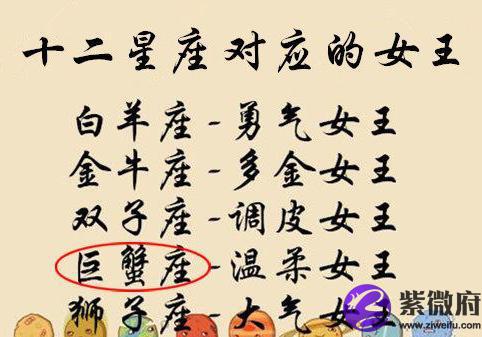 十二星座对应的女王
白羊座-勇气女王
金牛座-多金女王
双子座-调皮女王
巨蟹座-温柔女王
狮子座-大气女王
紫微府
www.ziweifu.com